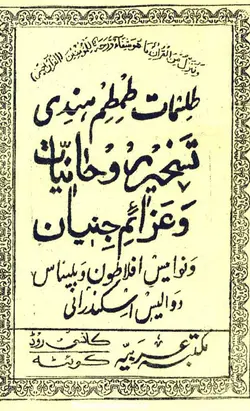 وَنُنَزِّلُ مِنَ الْقُرْآنِ مَا هُوَ شِفَاءٌ وَرَحْمَةٌ لِلْمُؤْمِنِينَ
طلسمات طمطم ہندی
تسخیر روحانیات
وعزائم جنیان
ونوامیس افلاطون وبلیناس
دوالیس اسکندرانی
مکتبہ عربیہ
کانسی روڈ
کوئٹہ